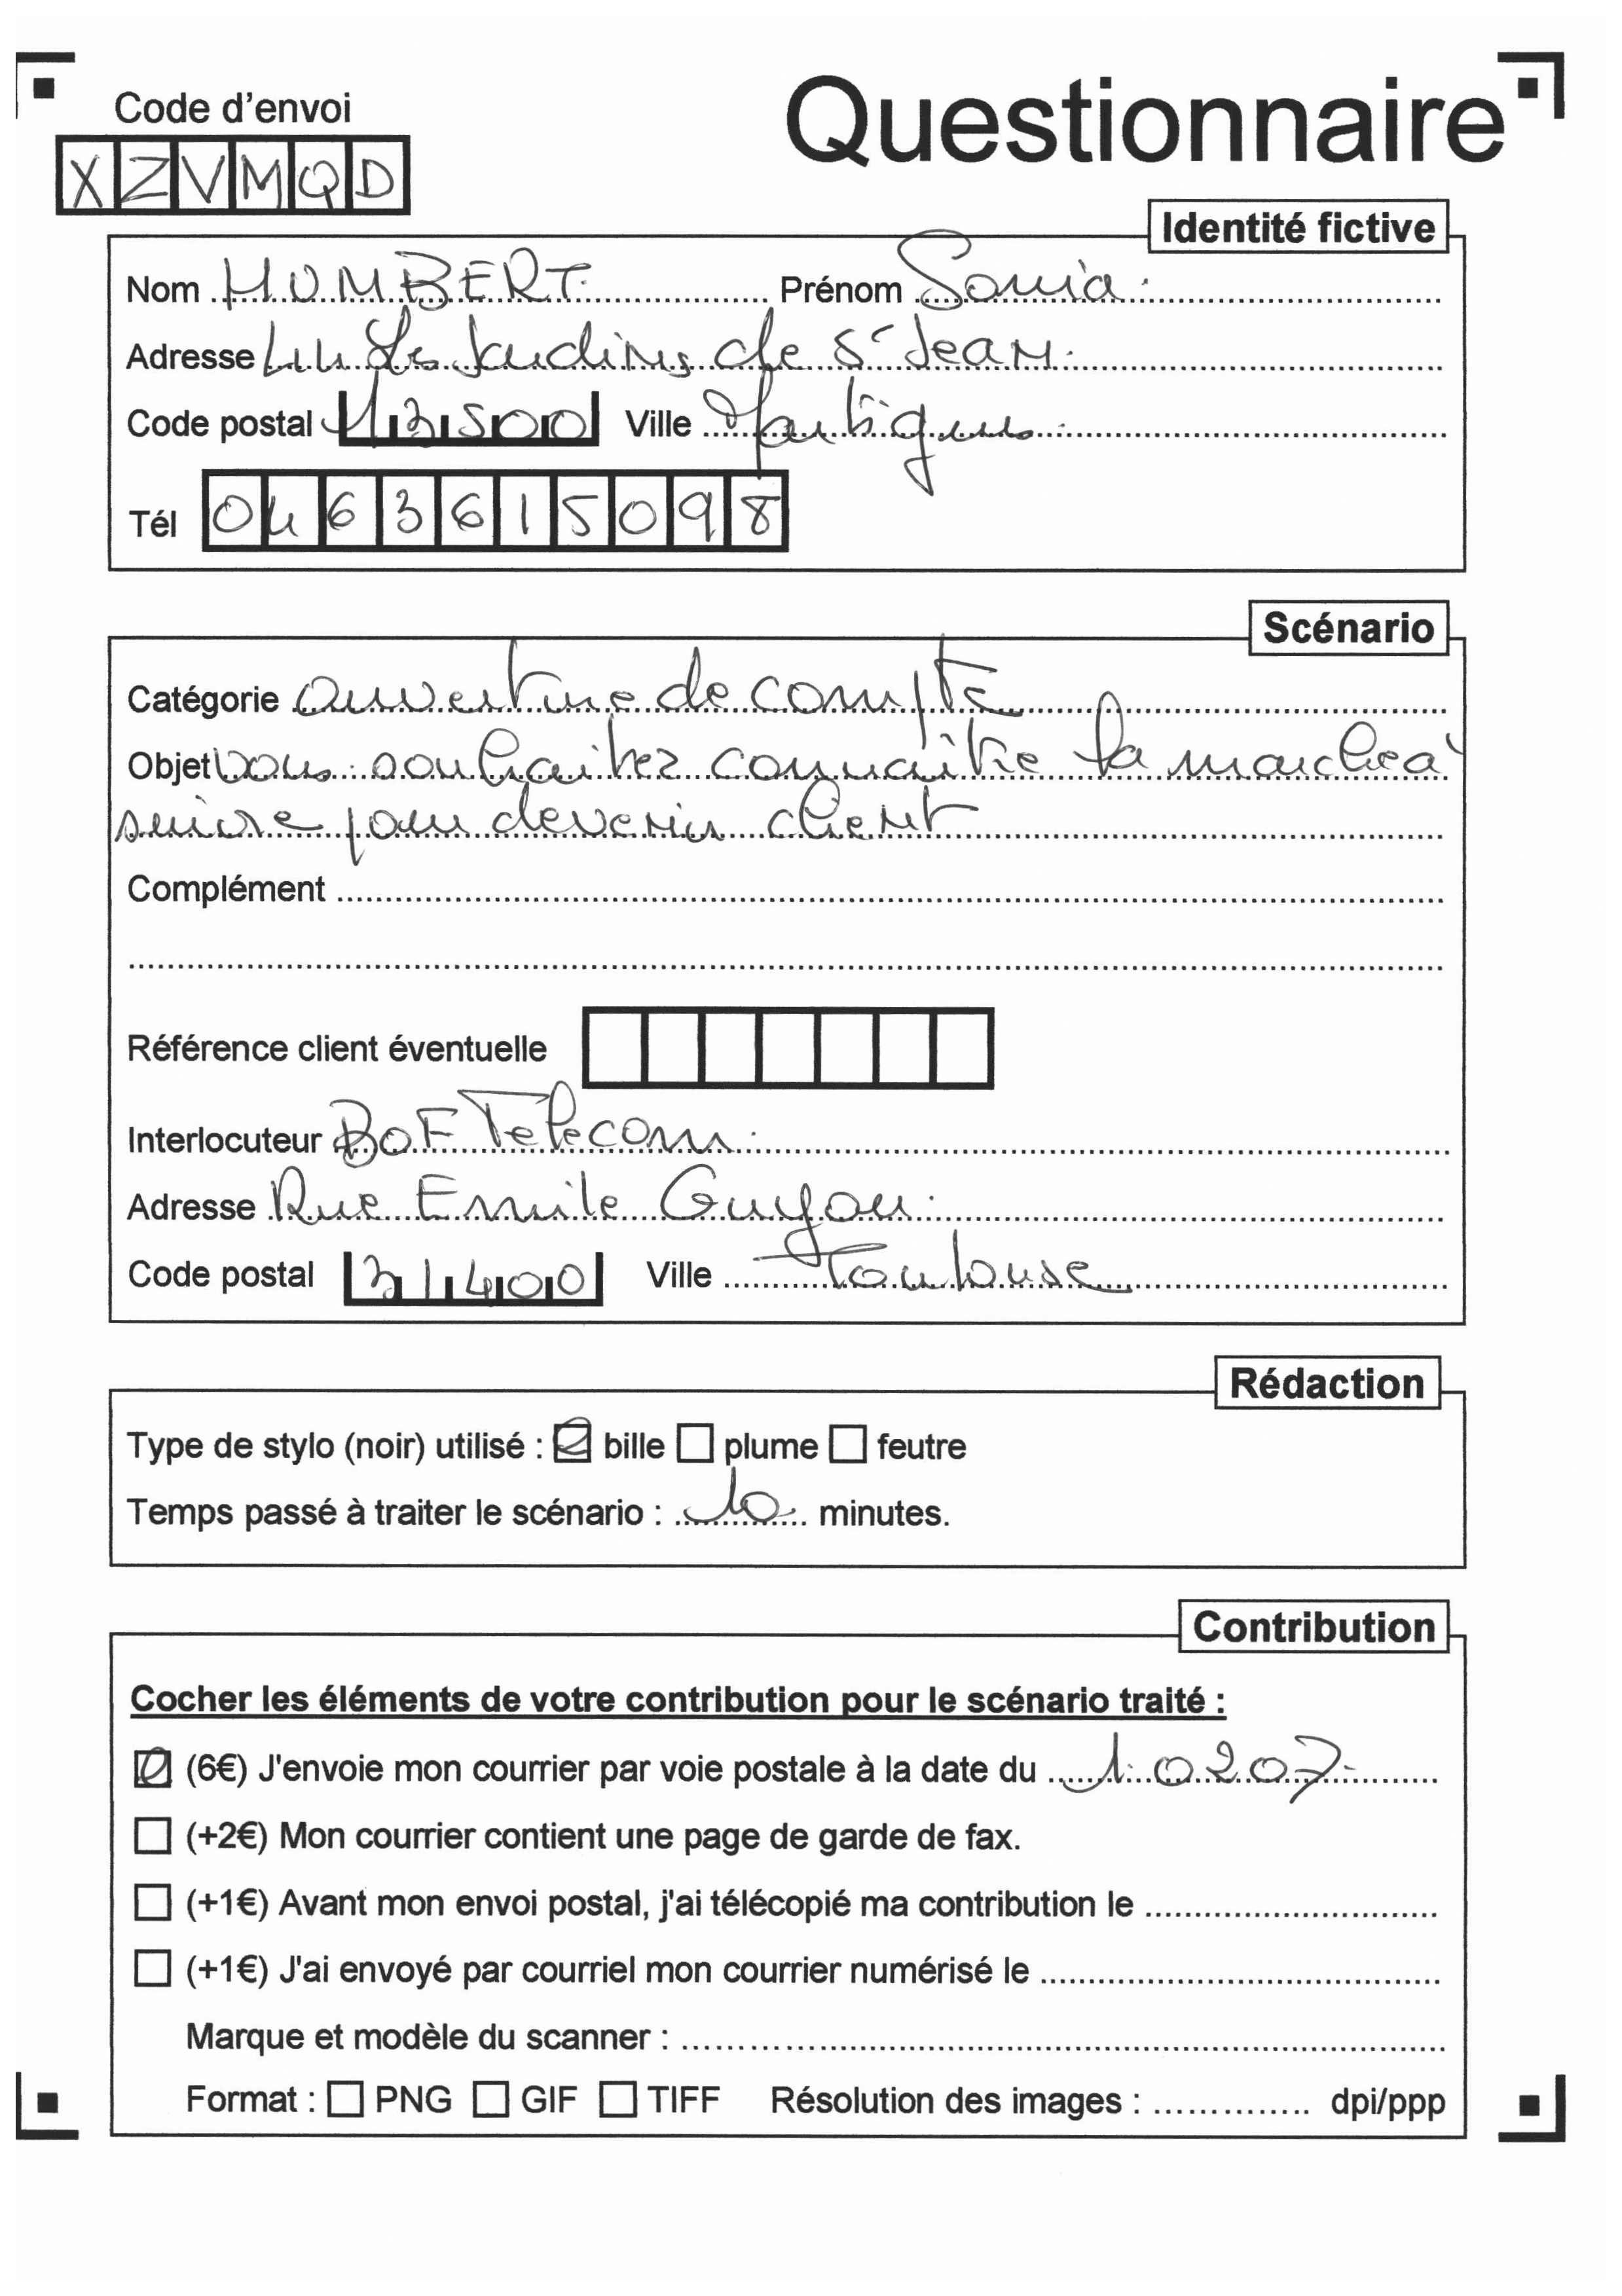 Code d'envoi
Questionnaire
XZVMQD
Identité fictive
Nom HUMBERT Prénom Sonia
Adresse 44 Les Jardins de St Jean.
Code postal 13500 Ville Martigues
Tél 0463615098
Scénario
Catégorie ouverture de compte
Objet vous souhaitez connaître la marche à
suivre pour devenir client
Complément
Référence client éventuelle
Interlocuteur BOF Telecom.
Adresse Rue Emile Guyou.
Code postal 31400 Ville Toulouse
Rédaction
Type de stylo (noir) utilisé : bille plume feutre
Temps passé à traiter le scénario : 10 minutes.
Contribution
Cocher les éléments de votre contribution pour le scénario traité :
(6€) J'envoie mon courrier par voie postale à la date du 1.0207
(+2€) Mon courrier contient une page de garde de fax.
(+1€) Avant mon envoi postal, j'ai télécopié ma contribution le
(+1€) J'ai envoyé par courriel mon courrier numérisé le
Marque et modèle du scanner :
Format : PNG GIF TIFF Résolution des images : dpi/ppp